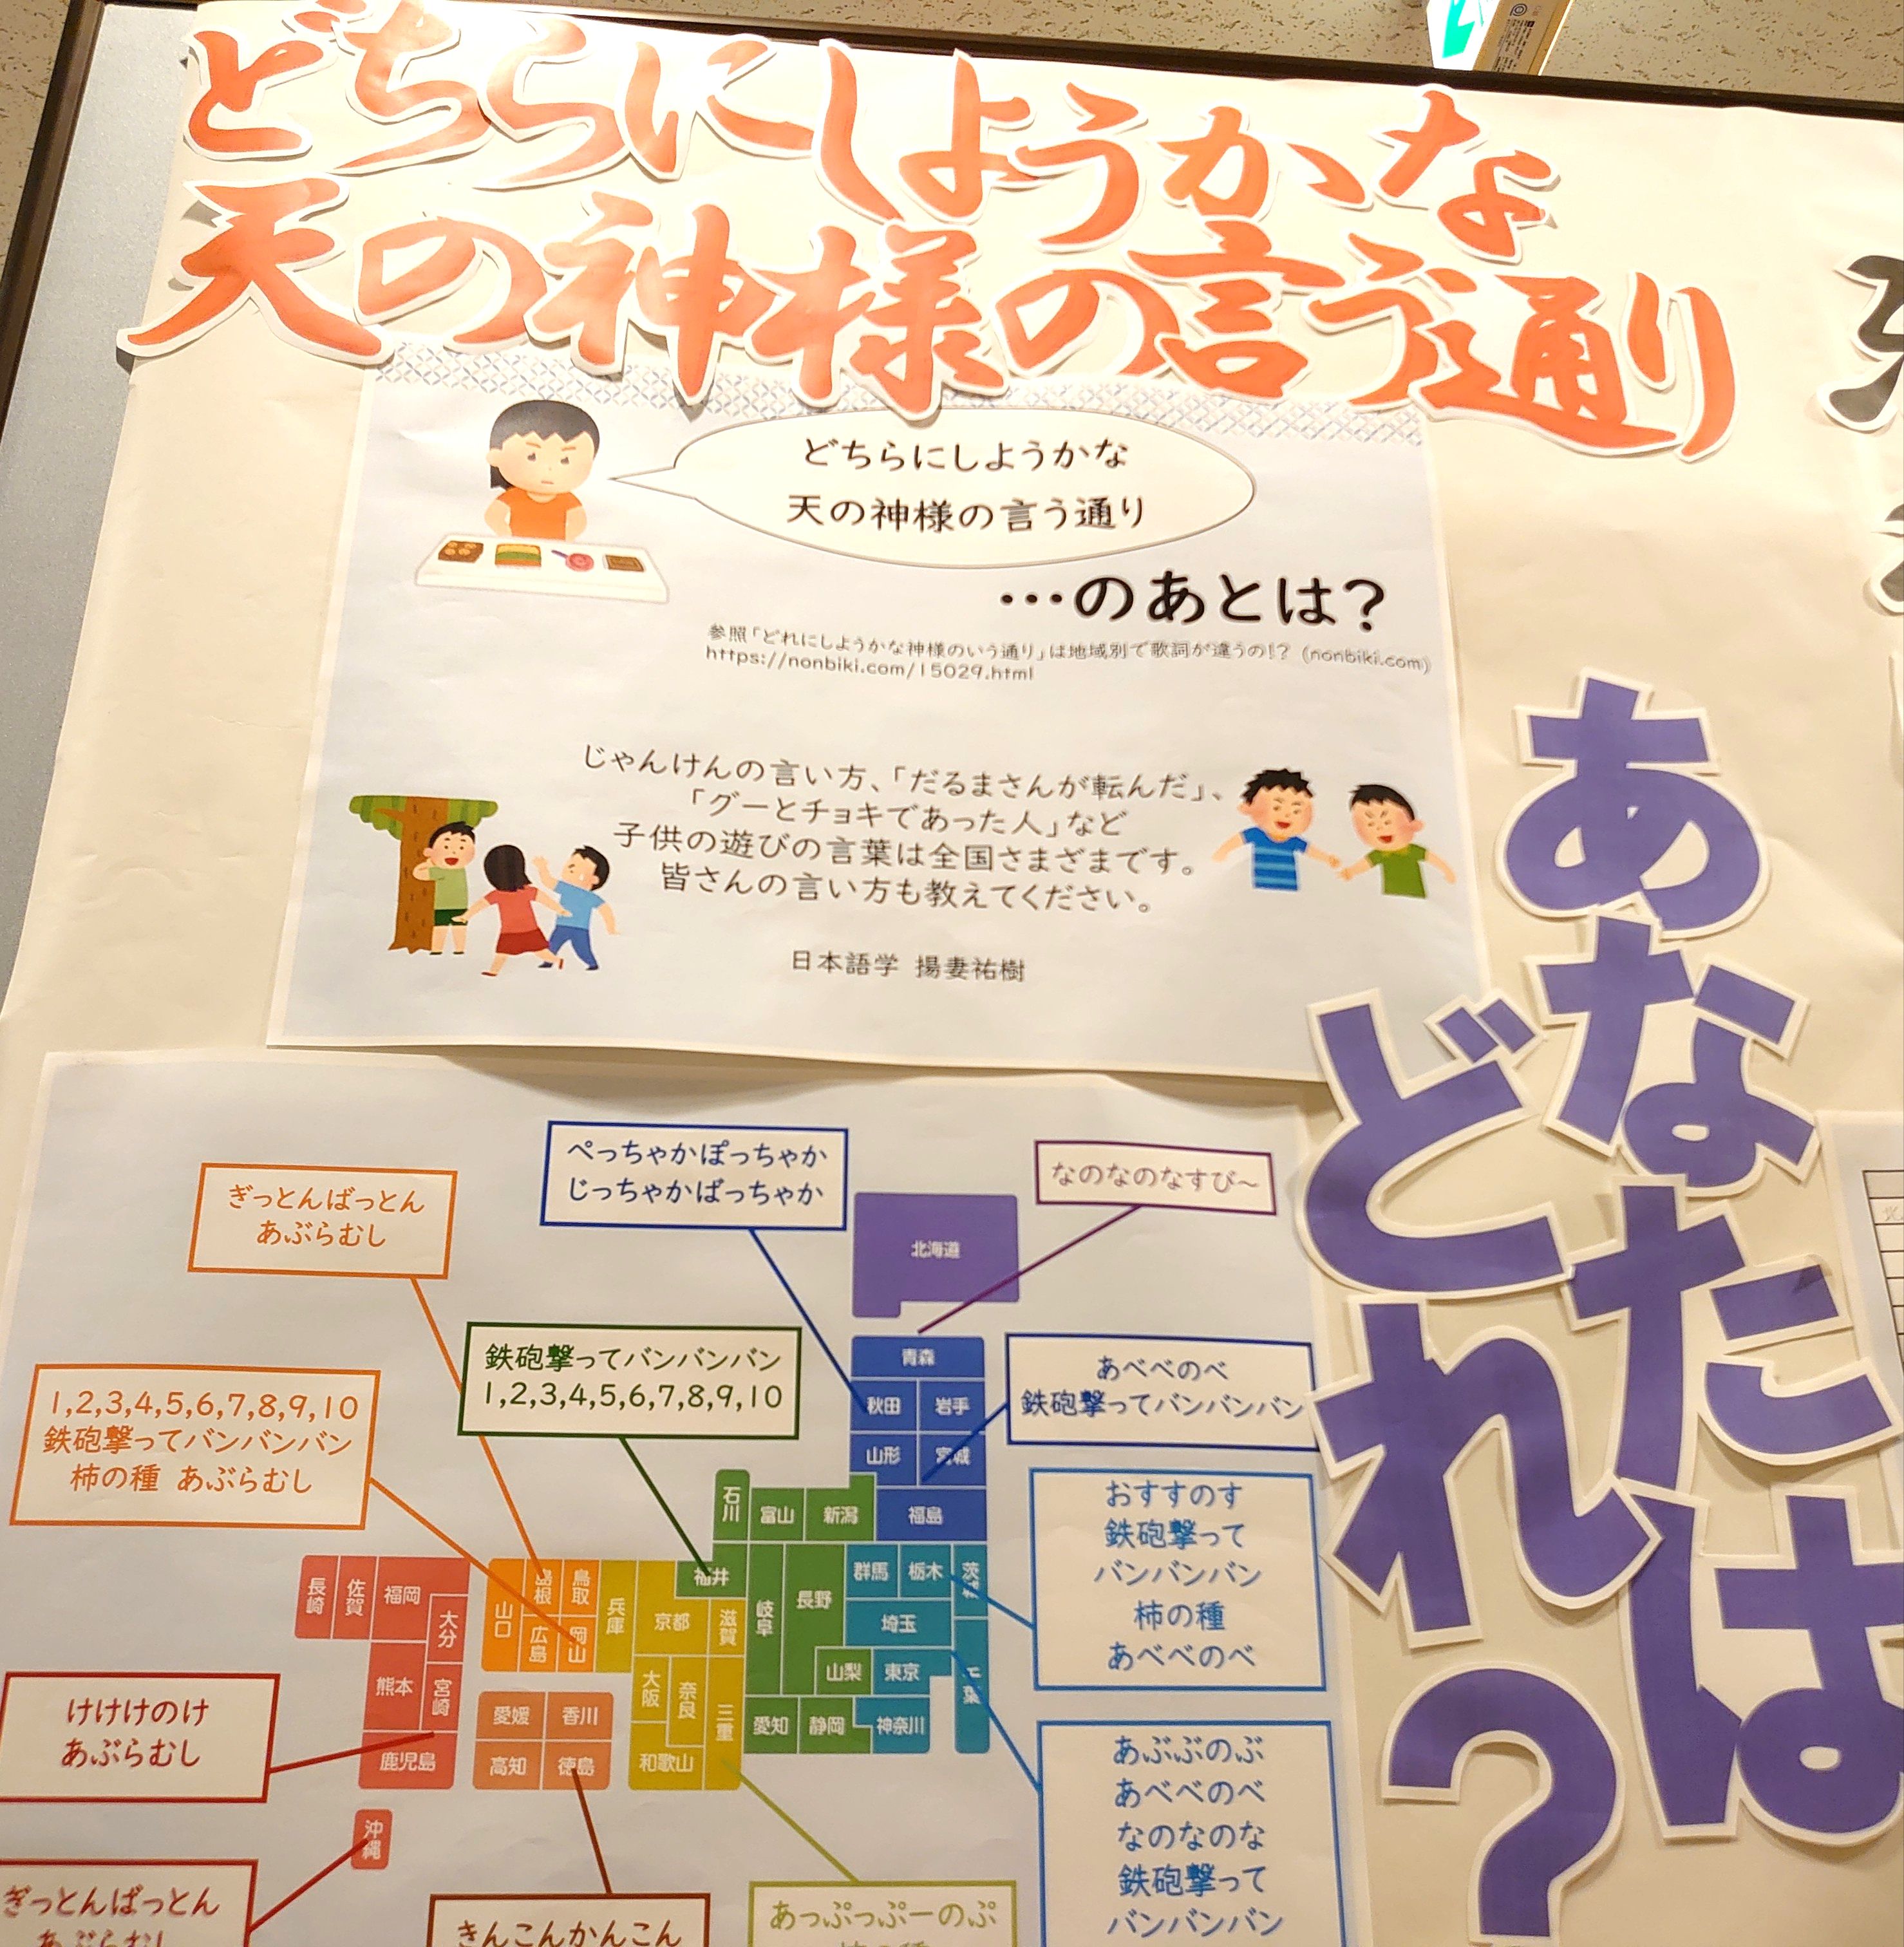 どちらにしようかな
天の神様の言う通り
どちらにしようかな
天の神様の言う通り
…のあとは?
参照「どれにしようかな神様のいう通り」は地域別で歌詞が違うの!? (nonbiki.com)
https://nonbiki.com/15029.html
じゃんけんの言い方、「だるまさんが転んだ」、
「グーとチョキであった人」など
子供の遊びの言葉は全国さまざまです。
皆さんの言い方も教えてください。
日本語学 揚妻祐樹
あなたは
どれ?
ぺっちゃかぽっちゃか
じっちゃかばっちゃか
なのなのなすび～
ぎっとんばっとん
あぶらむし
鉄砲撃ってバンバンバン
1,2,3,4,5,6,7,8,9,10
1,2,3,4,5,6,7,8,9,10
鉄砲撃ってバンバンバン
柿の種 あぶらむし
あべべのべ
鉄砲撃ってバンバンバン
おすすのす
鉄砲撃って
バンバンバン
柿の種
あべべのべ
あぶぶのぶ
あべべのべ
なのなのな
鉄砲撃って
バンバンバン
けけけのけ
あぶらむし
ぎっとんばっとん
あぶらむし
きんこんかんこん
あっぷっぷーのぷ
北海道
青森
秋田
岩手
山形
宮城
福島
石川
富山
新潟
福井
岐阜
長野
群馬
栃木
茨城
埼玉
山梨
東京
千葉
愛知
静岡
神奈川
長崎
佐賀
福岡
大分
熊本
宮崎
鹿児島
沖縄
山口
島根
鳥取
広島
岡山
兵庫
京都
滋賀
大阪
奈良
三重
和歌山
愛媛
香川
高知
徳島